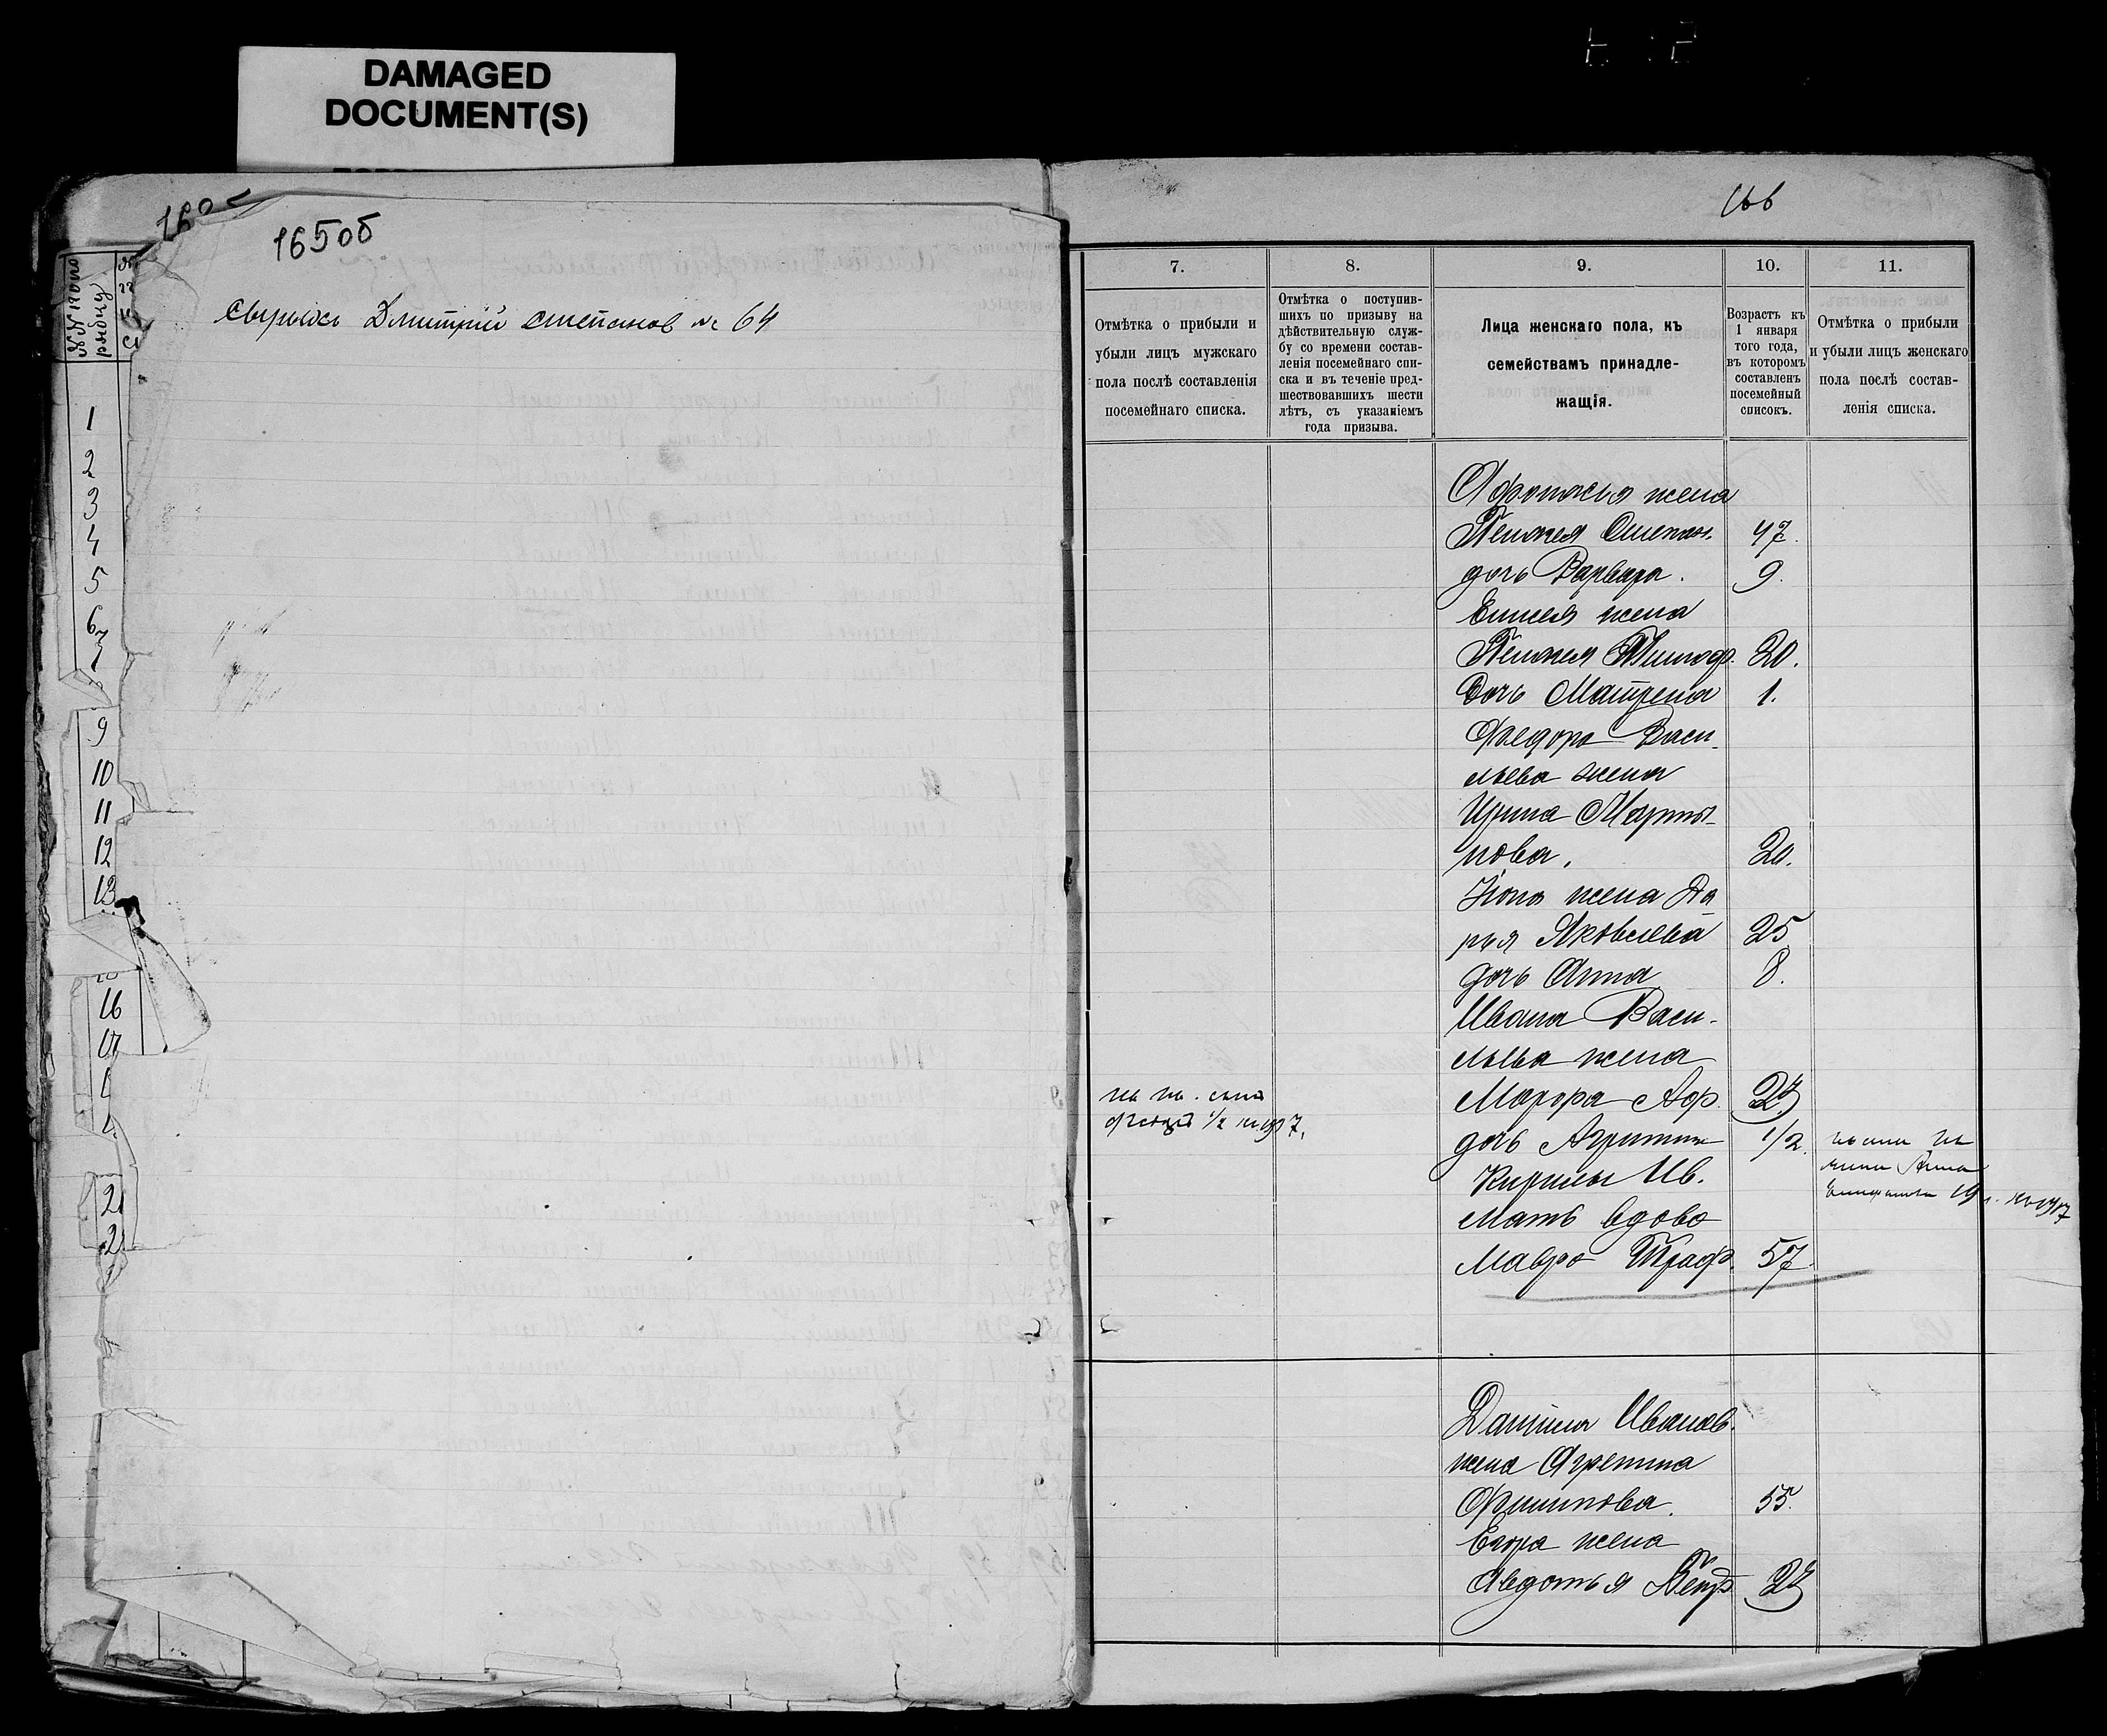 DAMAGED
DOCUMENT(S)
165об
Дмитрий Степанов № 64
1
2
3
4
5
6
9
10
11
12
13
16
166
7.
8.
9.
10.
11.
Отмѣтка о прибыли и
убыли лицъ мужскаго
пола послѣ составленія
посемейнаго списка.
Отмѣтка о поступив-
шихъ по призыву на
дѣйствительную служ-
бу со времени состав-
ленія посемейнаго спи-
ска и въ теченіе пред-
шествовавшихъ шести
лѣтъ, съ указаніемъ
года призыва.
Лица женскаго пола, къ
семействамъ принадле-
жащія.
Возрастъ къ
1 января
того года,
въ которомъ
составленъ
посемейный
списокъ.
Отмѣтка о прибыли
и убыли лицъ женскаго
пола послѣ состав-
ленія списка.
Афонасья жена
Пелагея Степан. 47.
дочь Варвара. 9.
Елисея жена
Пелагея Тимоф. 20.
Дочь Матрена 1.
Федора Васи-
льева жена
Ирина Марты-
нова. 20.
Iюна жена Да
рья Яковлева 25
дочь Анна 8.
Ивана Васи-
льева жена
Марфа Аф. 27
дочь 1/2.
Кирилы Ив.
Мать вдова
Мавра Траф. 57
Данила Иванов.
жена Агрепина
Филипова. 55.
Егора жена
Авдотья Петр 27